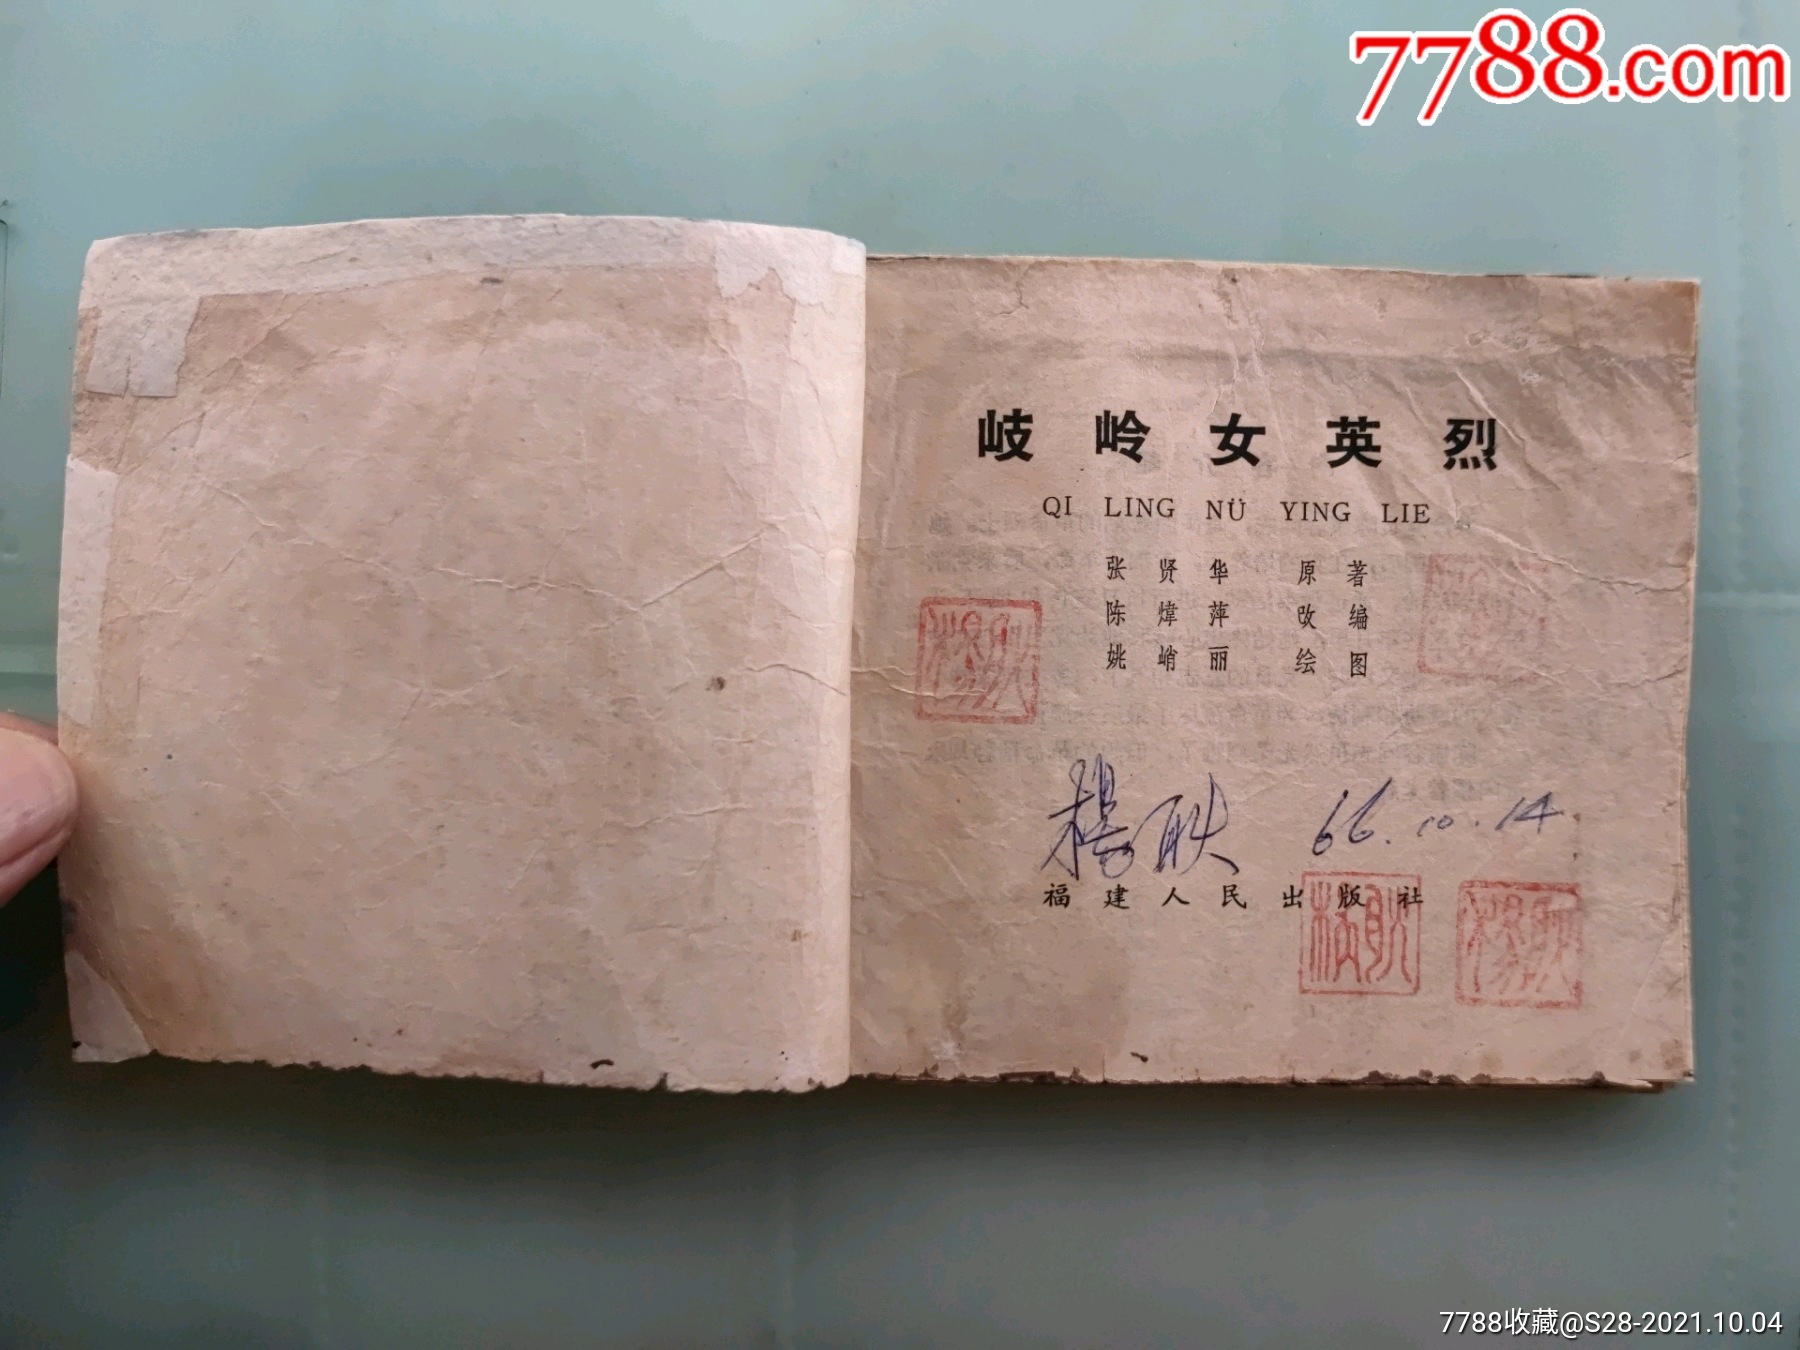 7788.com
岐岭女英烈
QI LING NÜ YING LIE
张贤华 原著
陈炜萍 改编
姚峭丽 绘图
杨耿
杨耿 66.10.14
福建人民出版社
杨耿 杨耿
7788收藏@S28-2021.10.04